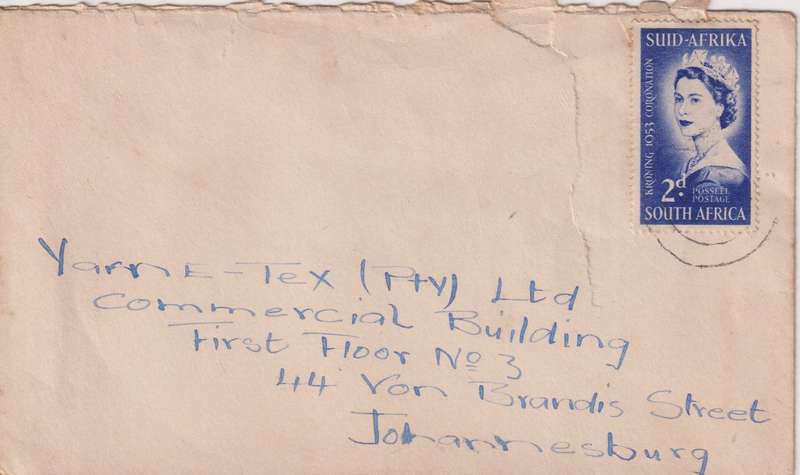 SUID-AFRIKA
KRONING 1953 CORONATION
2d.
POSSEEL
POSTAGE
SOUTH AFRICA
Yarn E-Tex (Pty) Ltd
Commercial Building
First Floor No 3
44 Von Brandis Street
Johannesburg